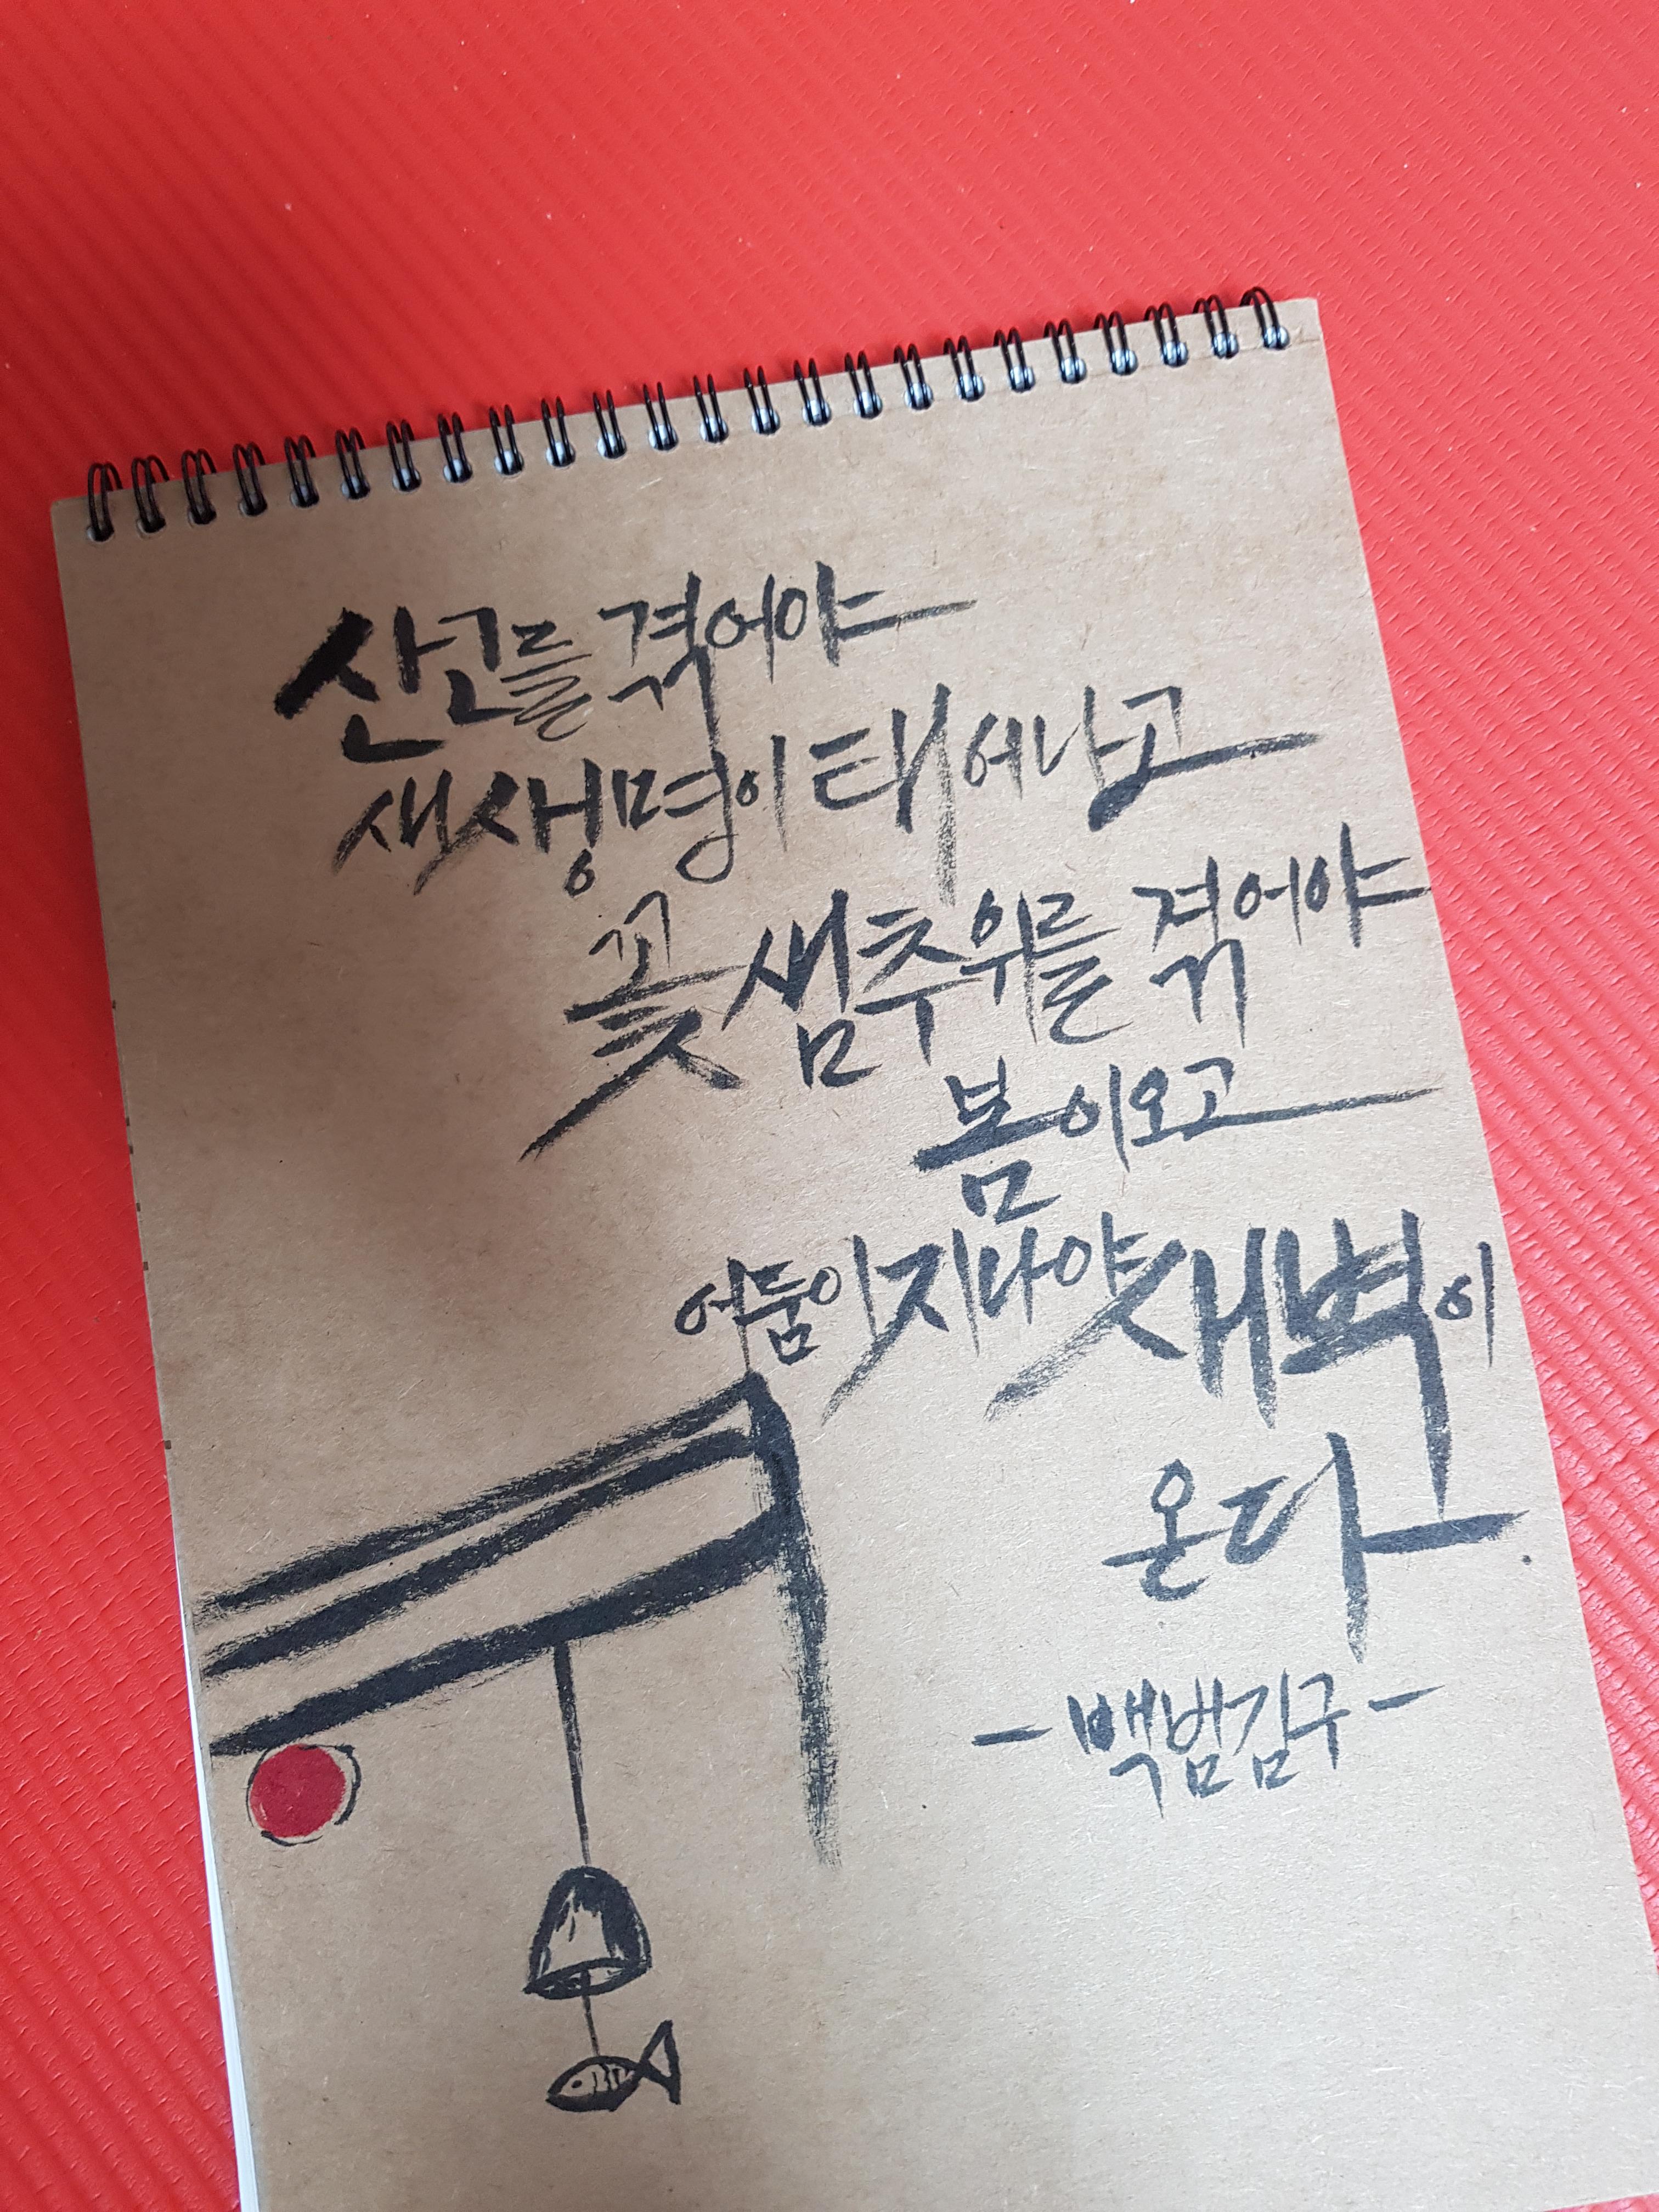 산고를 겪어야
새생명이 태어나고
꽃샘추위를 겪어야
봄이오고
어둠이 지나야 새벽이
온다
- 백범김구 -